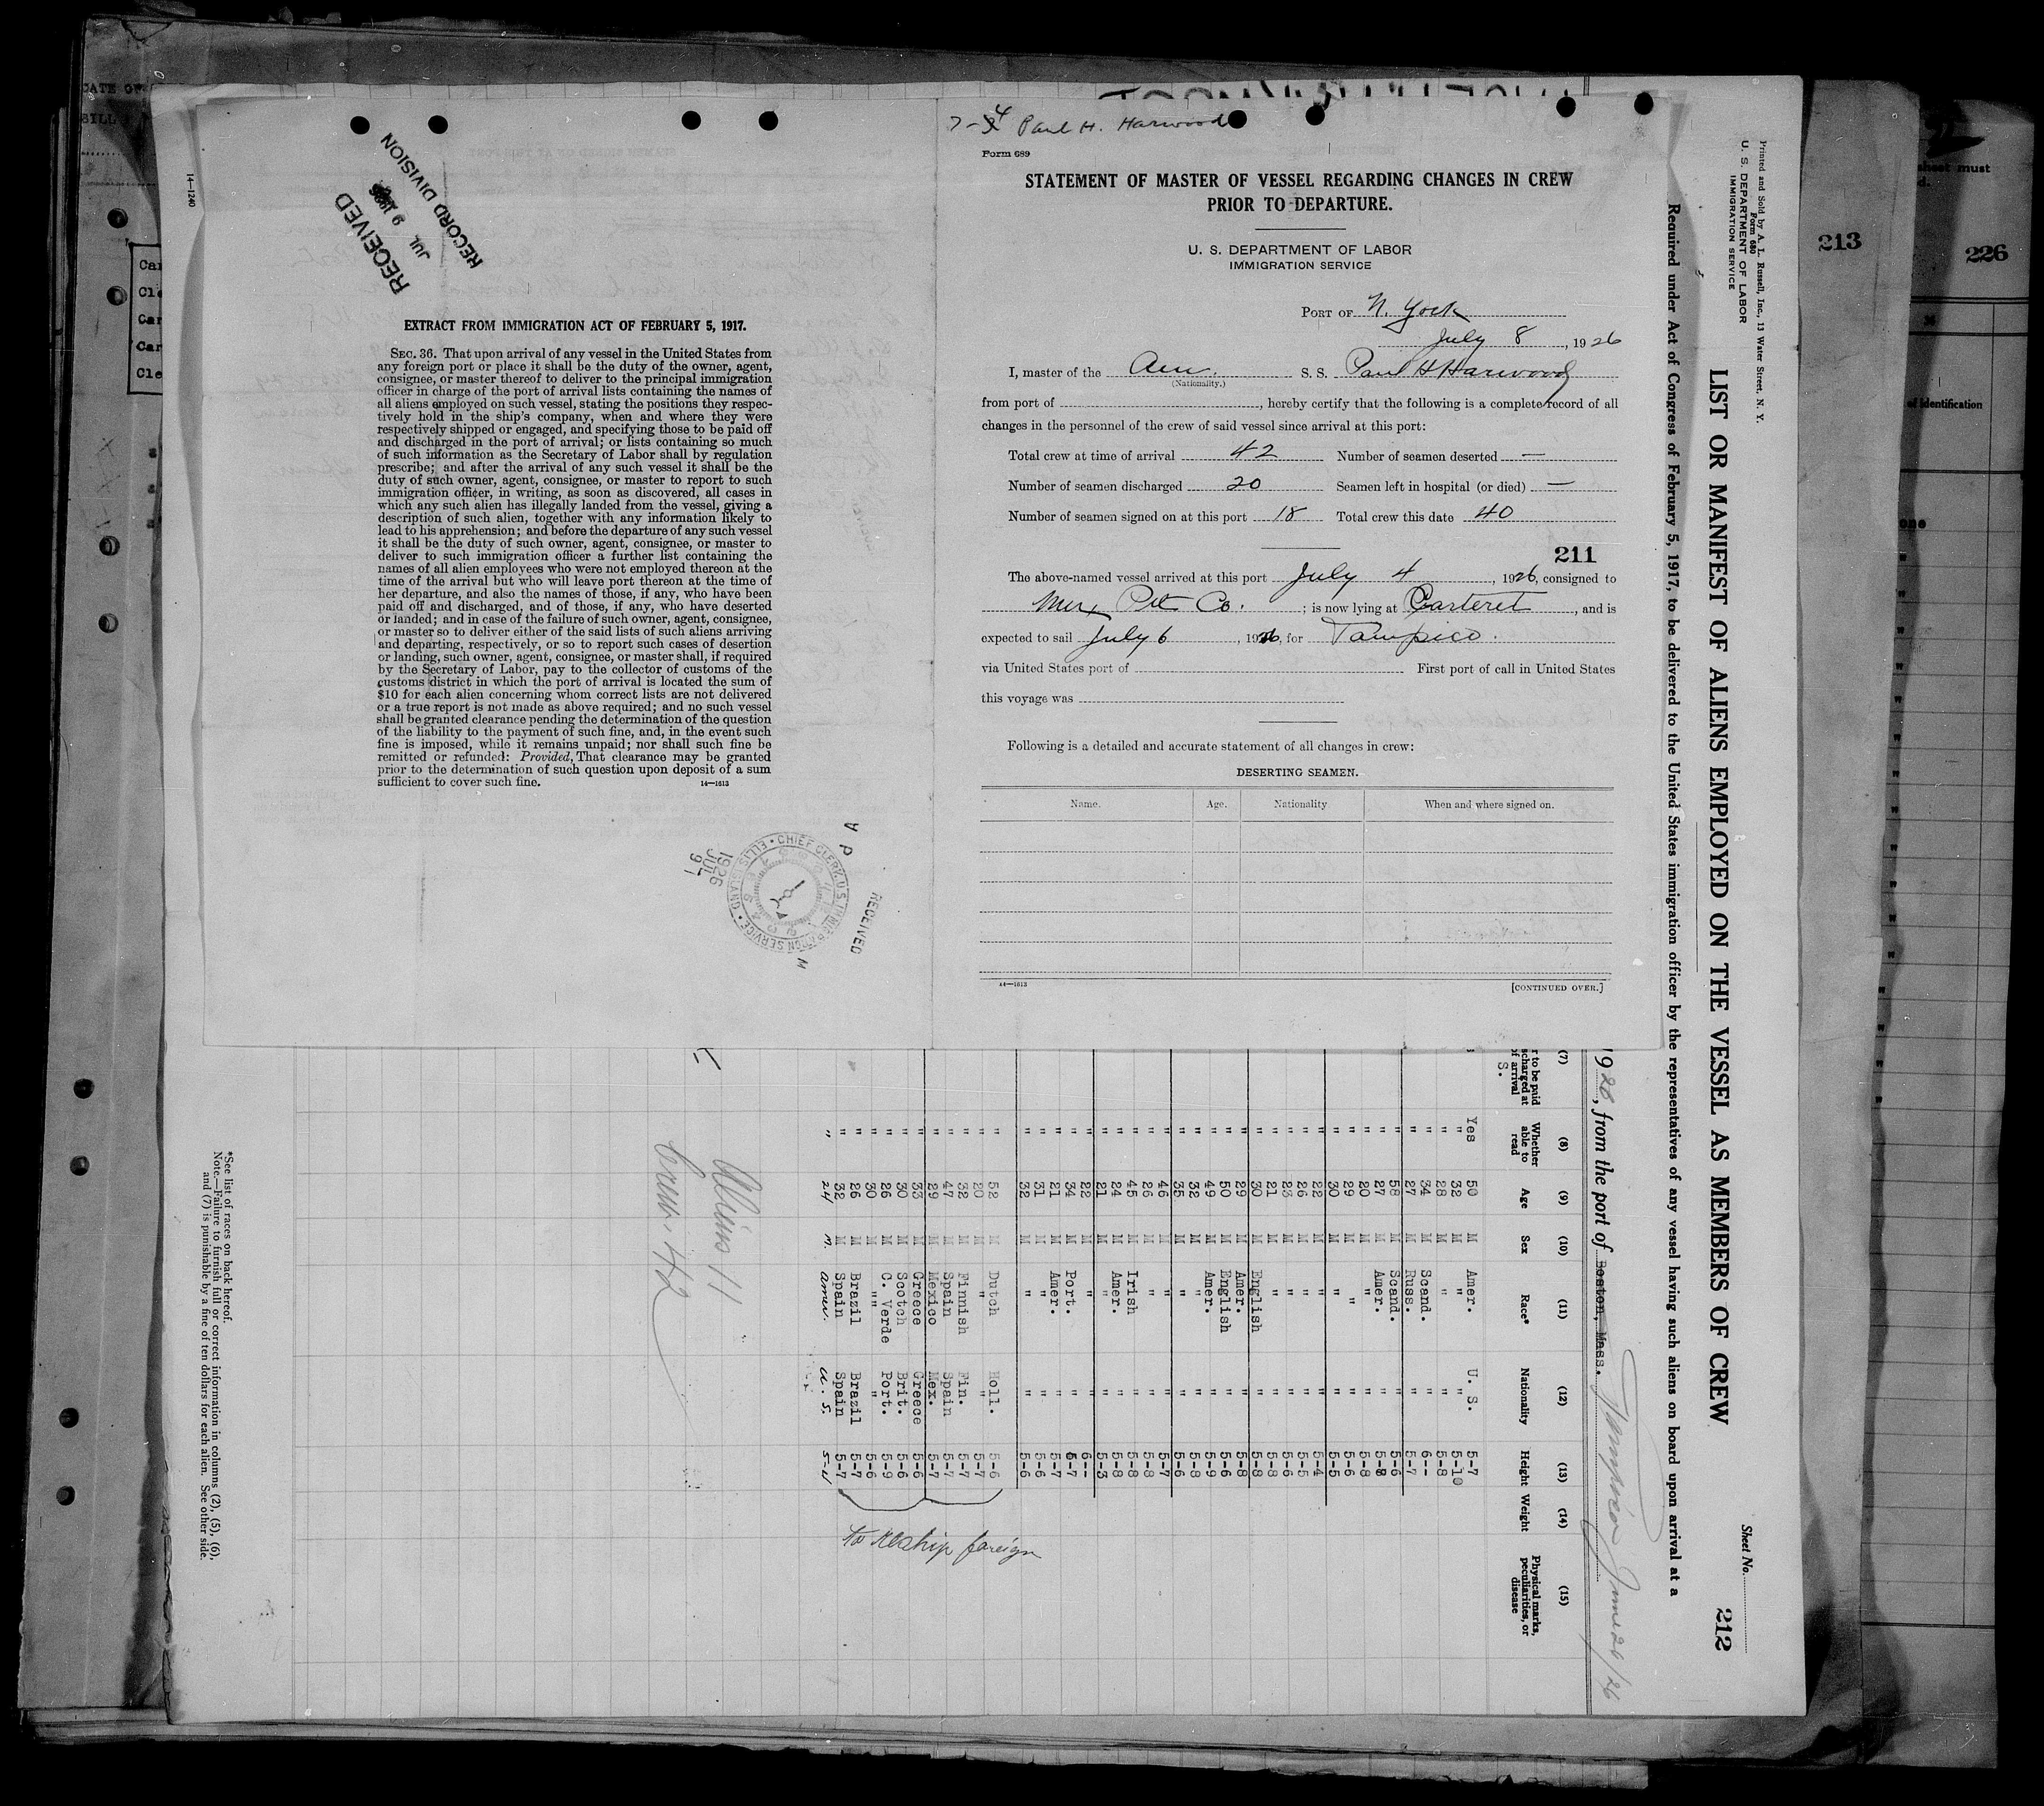 7-4 Paul H. Harwood
Form 689
STATEMENT OF MASTER OF VESSEL REGARDING CHANGES IN CREW
PRIOR TO DEPARTURE.
U. S. DEPARTMENT OF LABOR
IMMIGRATION SERVICE
PORT OF N. York
July 8, 1926
I, master of the Am. S. S. Paul H Harwood
(Nationality.)
from port of , hereby certify that the following is a complete record of all
changes in the personnel of the crew of said vessel since arrival at this port:
Total crew at time of arrival 42 Number of seamen deserted —
Number of seamen discharged 20 Seamen left in hospital (or died) —
Number of seamen signed on at this port 18 Total crew this date 40
211
The above-named vessel arrived at this port July 4, 1926, consigned to
Mex Pet Co. ; is now lying at Carteret, and is
expected to sail July 6, 1926, for Tampico.
via United States port of First port of call in United States
this voyage was
Following is a detailed and accurate statement of all changes in crew:
DESERTING SEAMEN.
Name. Age. Nationality When and where signed on.
14—1613
[CONTINUED OVER.]
14-1240
RECEIVED
JUL 9 1926
RECORD DIVISION
EXTRACT FROM IMMIGRATION ACT OF FEBRUARY 5, 1917.
SEC. 36. That upon arrival of any vessel in the United States from
any foreign port or place it shall be the duty of the owner, agent,
consignee, or master thereof to deliver to the principal immigration
officer in charge of the port of arrival lists containing the names of
all aliens employed on such vessel, stating the positions they respec-
tively hold in the ship's company, when and where they were
respectively shipped or engaged, and specifying those to be paid off
and discharged in the port of arrival; or lists containing so much
of such information as the Secretary of Labor shall by regulation
prescribe; and after the arrival of any such vessel it shall be the
duty of such owner, agent, consignee, or master to report to such
immigration officer, in writing, as soon as discovered, all cases in
which any such alien has illegally landed from the vessel, giving a
description of such alien, together with any information likely to
lead to his apprehension; and before the departure of any such vessel
it shall be the duty of such owner, agent, consignee, or master to
deliver to such immigration officer a further list containing the
names of all alien employees who were not employed thereon at the
time of the arrival but who will leave port thereon at the time of
her departure, and also the names of those, if any, who have been
paid off and discharged, and of those, if any, who have deserted
or landed; and in case of the failure of such owner, agent, consignee,
or master so to deliver either of the said lists of such aliens arriving
and departing, respectively, or so to report such cases of desertion
or landing, such owner, agent, consignee, or master shall, if required
by the Secretary of Labor, pay to the collector of customs of the
customs district in which the port of arrival is located the sum of
$10 for each alien concerning whom correct lists are not delivered
or a true report is not made as above required; and no such vessel
shall be granted clearance pending the determination of the question
of the liability to the payment of such fine, and, in the event such
fine is imposed, while it remains unpaid; nor shall such fine be
remitted or refunded: Provided, That clearance may be granted
prior to the determination of such question upon deposit of a sum
sufficient to cover such fine.
14—1613
RECEIVED
CHIEF CLERK, U.S. IMMIGRATION SERVICE • ELLIS ISLAND
1926
JUL 9
Printed and Sold by A. L. Russell, Inc., 13 Water Street, N. Y.
Form 680
U. S. DEPARTMENT OF LABOR
IMMIGRATION SERVICE
Sheet No.
212
LIST OR MANIFEST OF ALIENS EMPLOYED ON THE VESSEL AS MEMBERS OF CREW
Required under Act of Congress of February 5, 1917, to be delivered to the United States immigration officer by the representatives of any vessel having such aliens on board upon arrival at a
1926, from the port of Boston, Mass. Tampico June 26/26
(7) (8) (9) (10) (11) (12) (13) (14) (15)
Whether able to read Age Sex Race* Nationality Height Weight Physical marks, peculiarities, or disease
Yes 50 M Amer. U. S. 5-7
" 32 M " " 5-10
" 28 M " 5-8
" 34 M Scand. " 6--
" 27 M Russ. " 5-7
" 58 M Scand. " 5-6
" 27 M Amer. " 5-8
" 20 M " " 5-8
" 29 M " " 5-6
" 30 M " 5-5
" 22 M " " 5-4
" 26 M " " 5-5
" 23 M " " 5-6
" 21 M " " 5-8
" 30 M English " 5-8
" 29 M Amer. " 5-8
" 50 M English " 5-6
" 49 M Amer. " 5-9
" 32 M " " 5-8
" 35 M " " 5-6
" 46 M " " 5-7
" 26 M " " 5-8
" 45 M Irish " 5-8
" 24 M Amer. " 5-8
" 21 M " 5-3
" 22 M " " 6--
" 34 M Port. " 5-7
" 21 M Amer. " 5-7
" 31 M " " 5-6
" 32 M " " 5-6
" 52 M Dutch Holl. 5-6
" 20 M " " 5-7
" 32 M Finnish Fin. 5-7
" 47 M Spain Spain 5-7
" 29 M Mexico Mex. 5-7
" 33 M Greece Greece 5-6
" 30 M Scotch Brit. 5-6
" 26 M C. Verde Port. 5-9
" 30 M " " 5-6
" 26 M Brazil Brazil 5-7
" 32 M Spain Spain 5-7
" 24 M. Amer. U. S. 5-4
to reship foreign
Aliens 11
Crew. 42
*See list of races on back hereof.
Note.—Failure to furnish full or correct information in columns (2), (5), (6),
and (7) is punishable by a fine of ten dollars for each alien. See other side.
213
226
sheet must
of Identification